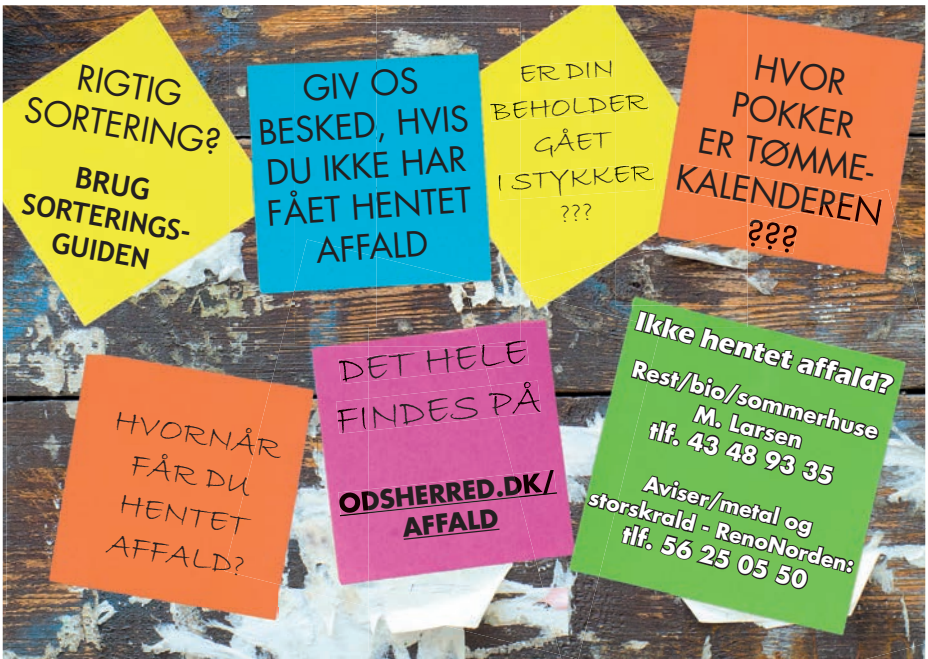 RIGTIG
SORTERING?
BRUG
SORTERINGS-
GUIDEN
GIV OS
BESKED, HVIS
DU IKKE HAR
FÅET HENTET
AFFALD
ER DIN
BEHOLDER
GÅET
I STYKKER
???
HVOR
POKKER
ER TØMME-
KALENDEREN
???
HVORNÅR
FÅR DU
HENTET
AFFALD?
DET HELE
FINDES PÅ
ODSHERRED.DK/
AFFALD
Ikke hentet affald?
Rest/bio/sommerhuse
M. Larsen
tlf. 43 48 93 35
Aviser/metal og
storskrald - RenoNorden:
tlf. 56 25 05 50